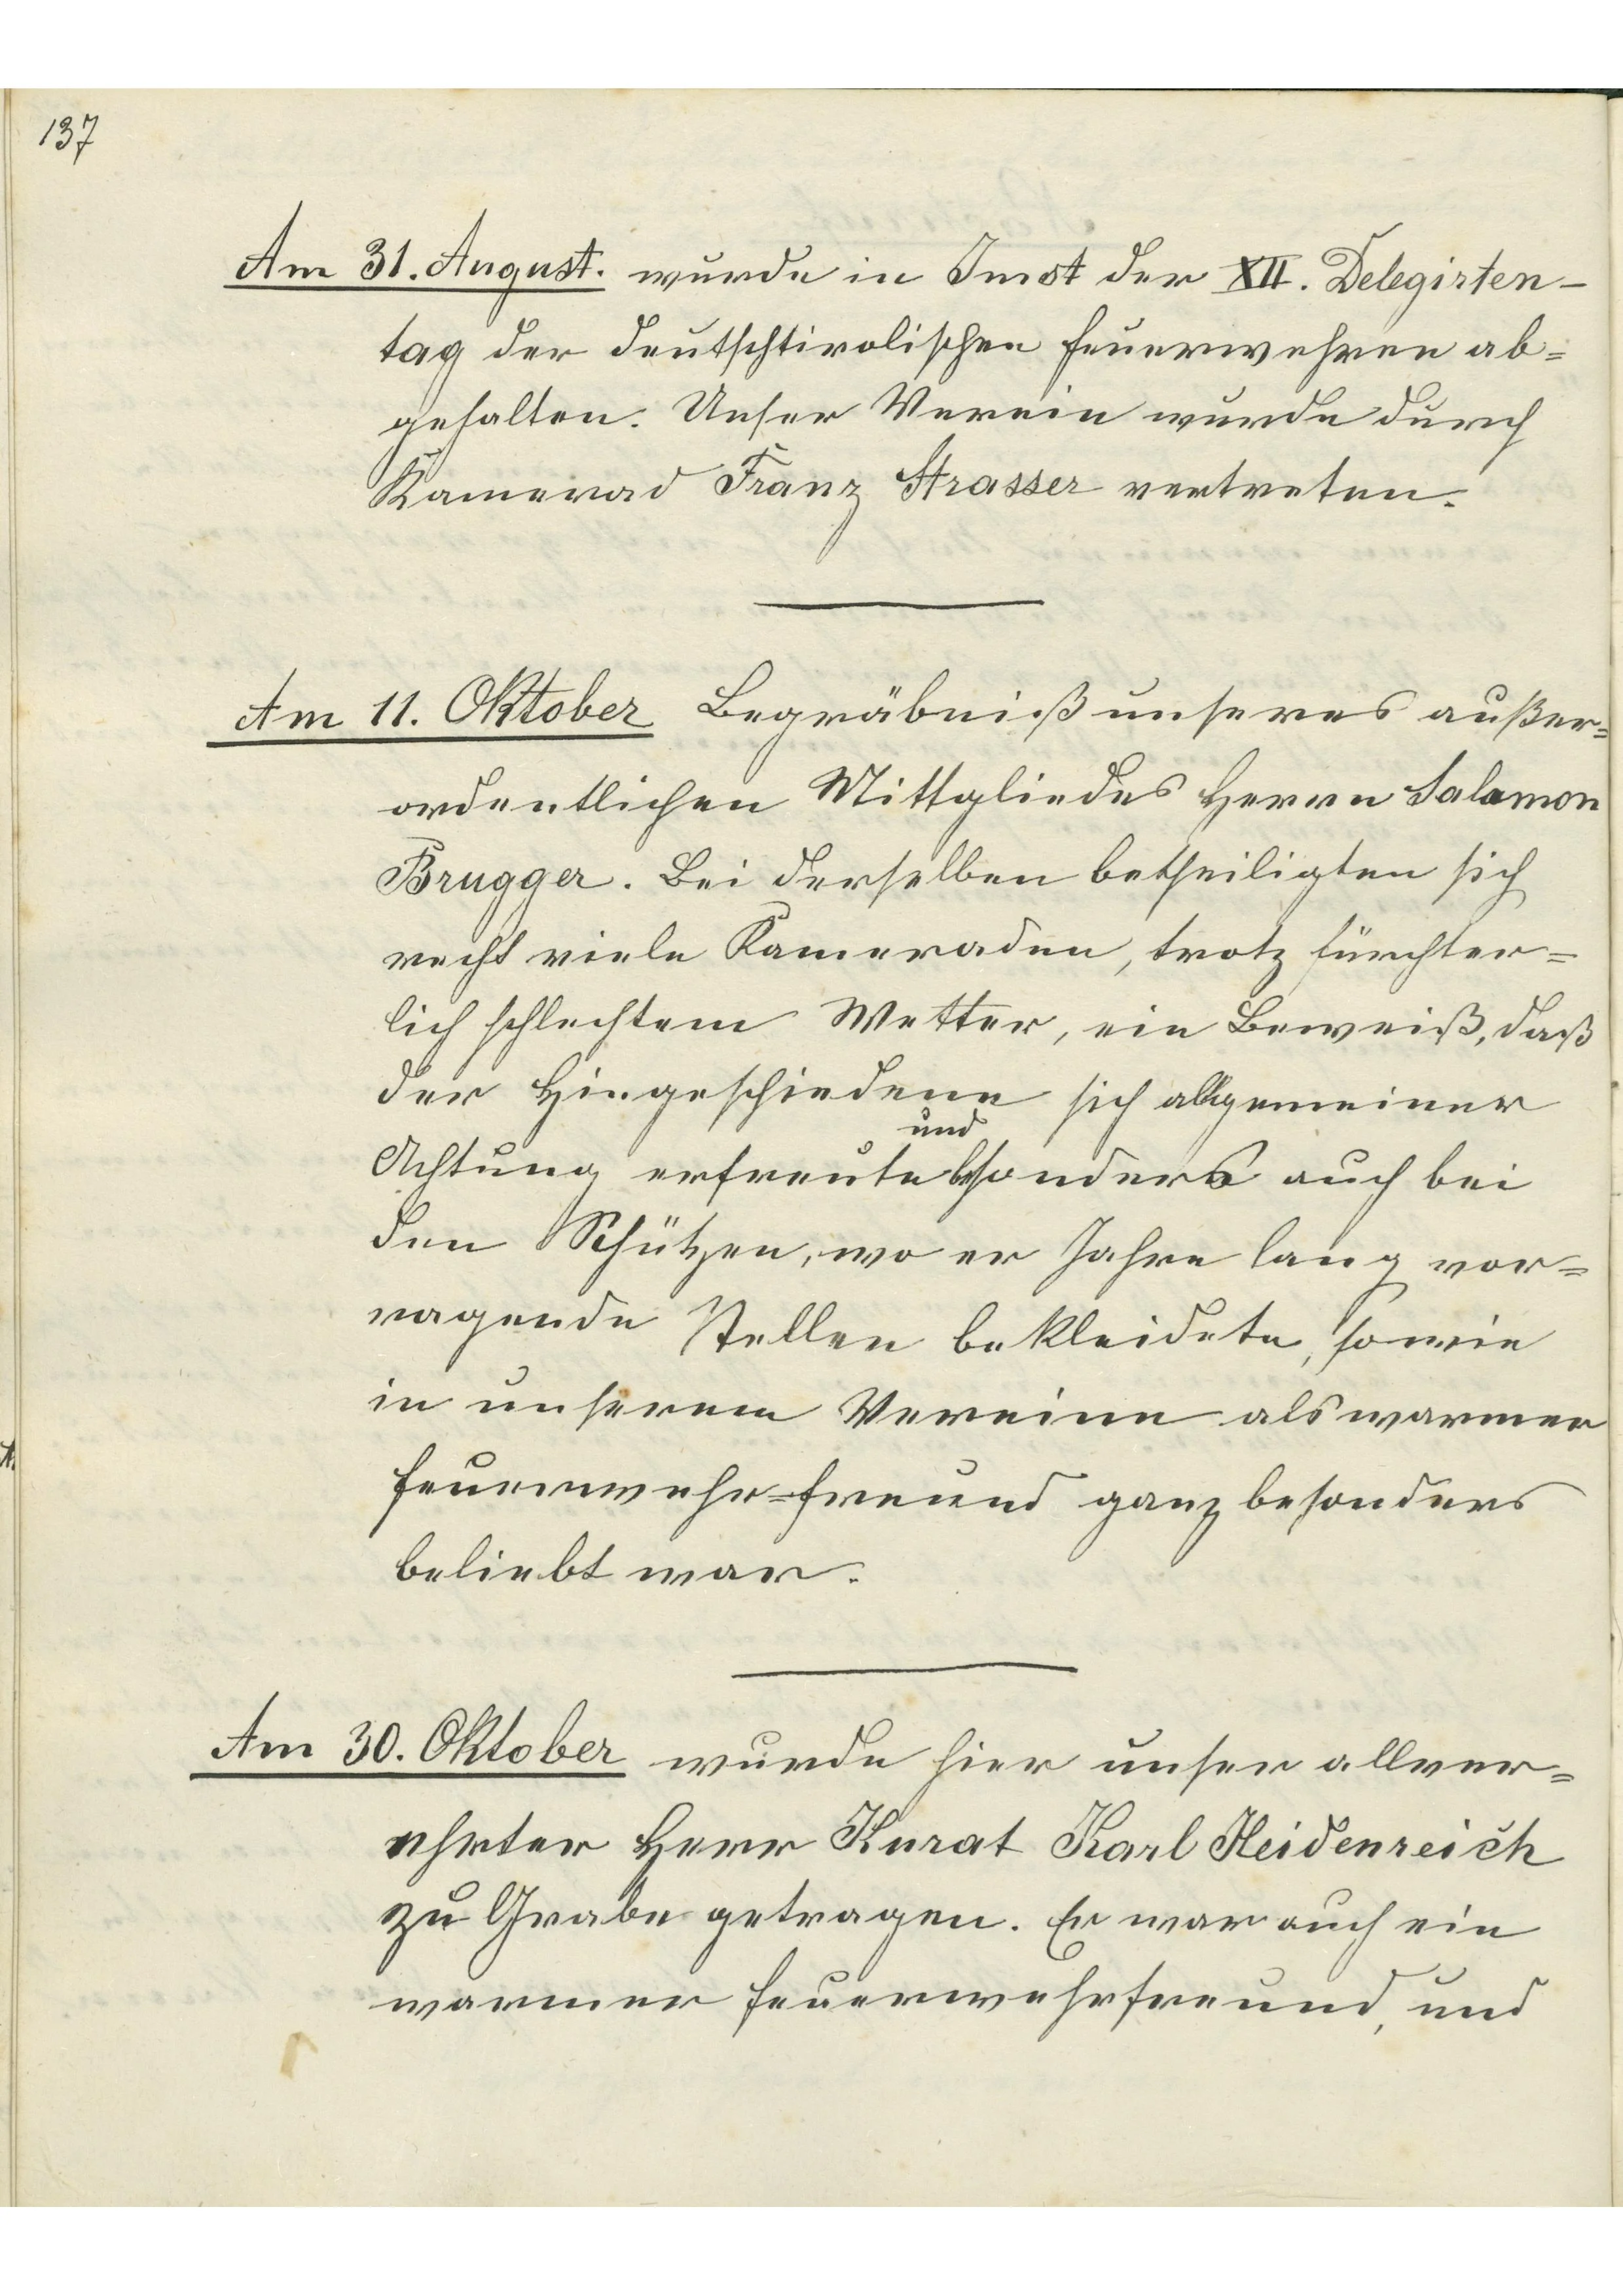 137
Am 31. August. wurde in Imst der XII. Delegirten-
tag der deutschtirolischen Feuerwehren ab=
gehalten. Unser Verein wurde durch
Kamerad Franz Strasser vertreten.
Am 11. Oktober Begräbniß unseres außer=
ordentlichen Mittgliedes Herrn Salamon
Brugger. Bei derselben betheiligten sich
recht viele Kameraden, trotz fürchter=
lich schlechtem Wetter, ein Beweiß, daß
der Hingeschiedene sich allgemeiner
und
Achtung erfreute besonders auch bei
den Schützen, wo er Jahre lang vor=
ragende Stellen bekleidete, sowie
in unserem Vereine als warmer
Feuerwehr=Freund ganz besonders
beliebt war.
Am 30. Oktober wurde hier unser allver=
ehrter Herr Kurat Karl Heidenreich
zu Grabe getragen. Er war auch ein
warmer Feuerwehrfreund, und